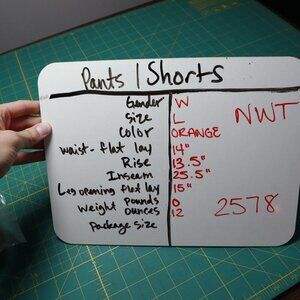 Pants / Shorts
Gender W
Size L
Color ORANGE
NWT
waist-flat lay 14"
Rise 13.5"
Inseam 25.5"
Leg opening flat lay 15"
Weight pounds 0
ounces 12
2578
Package Size